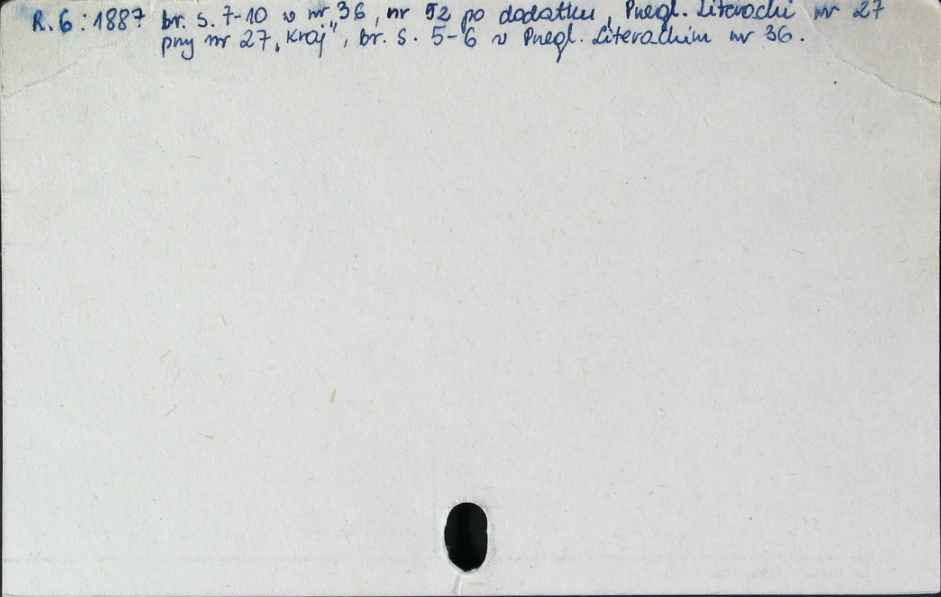 R. 6 : 1887 br. s. 7-10 w nr 36, nr 52 po dodatku, Przegl. Literacki nr 27
przy nr 27 „Kraj", br. s. 5-6 w Przegl. Literackim nr 36.